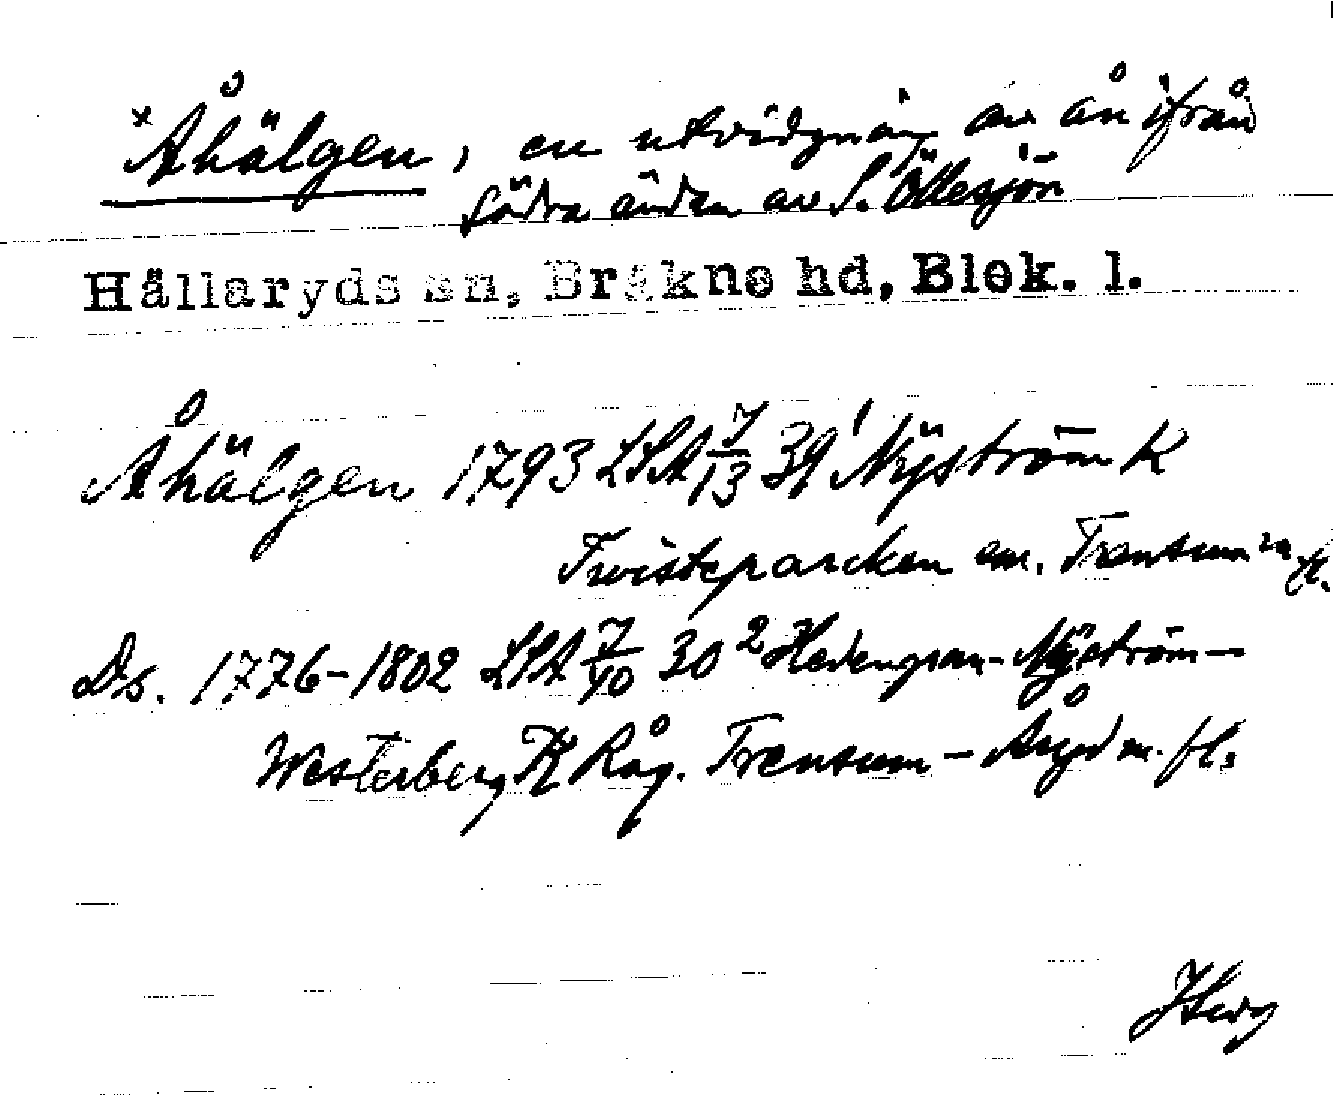 *Åhälgen, en utvidgning av ån ifrån
södra ändan av S. Öllesjön
Hällaryds sn, Bräkne hd, Blek. l.
Åhälgen 1793 LSA 7/13 39¹ Nyström K
Tvisteparcken em. Trensum m. fl.
Ds. 1776-1802 LSA 7/40 30² Hedengran-Nyström-
Westerberg K Råg. Trensum - Åryd m. fl.